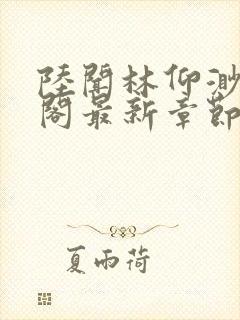 陸聞林仰渺
閣最新章節
夏雨荷